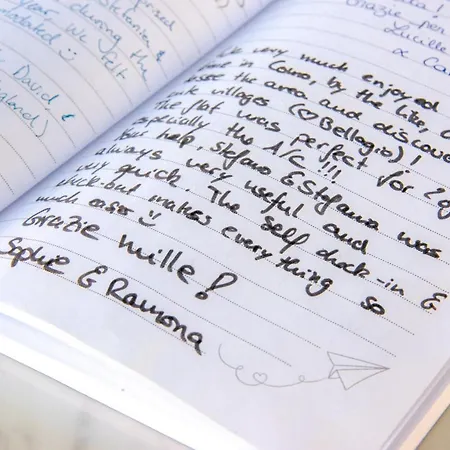 prised
during the
Stefania &
year. We felt
updated :)
David &
England)
Grazie per
Lucille
& Ca
We very much enjoyed
in Como, by the lake,
the area and discove
villages (♡ Bellagio)!
The flat was perfect for 2
especially the A/C !!!
Your help, Stefano & Stefania was
always very useful and
very quick. The self check-in &
check-out makes everything so
much easier :)
Grazie mille!
Sophie & Ramona